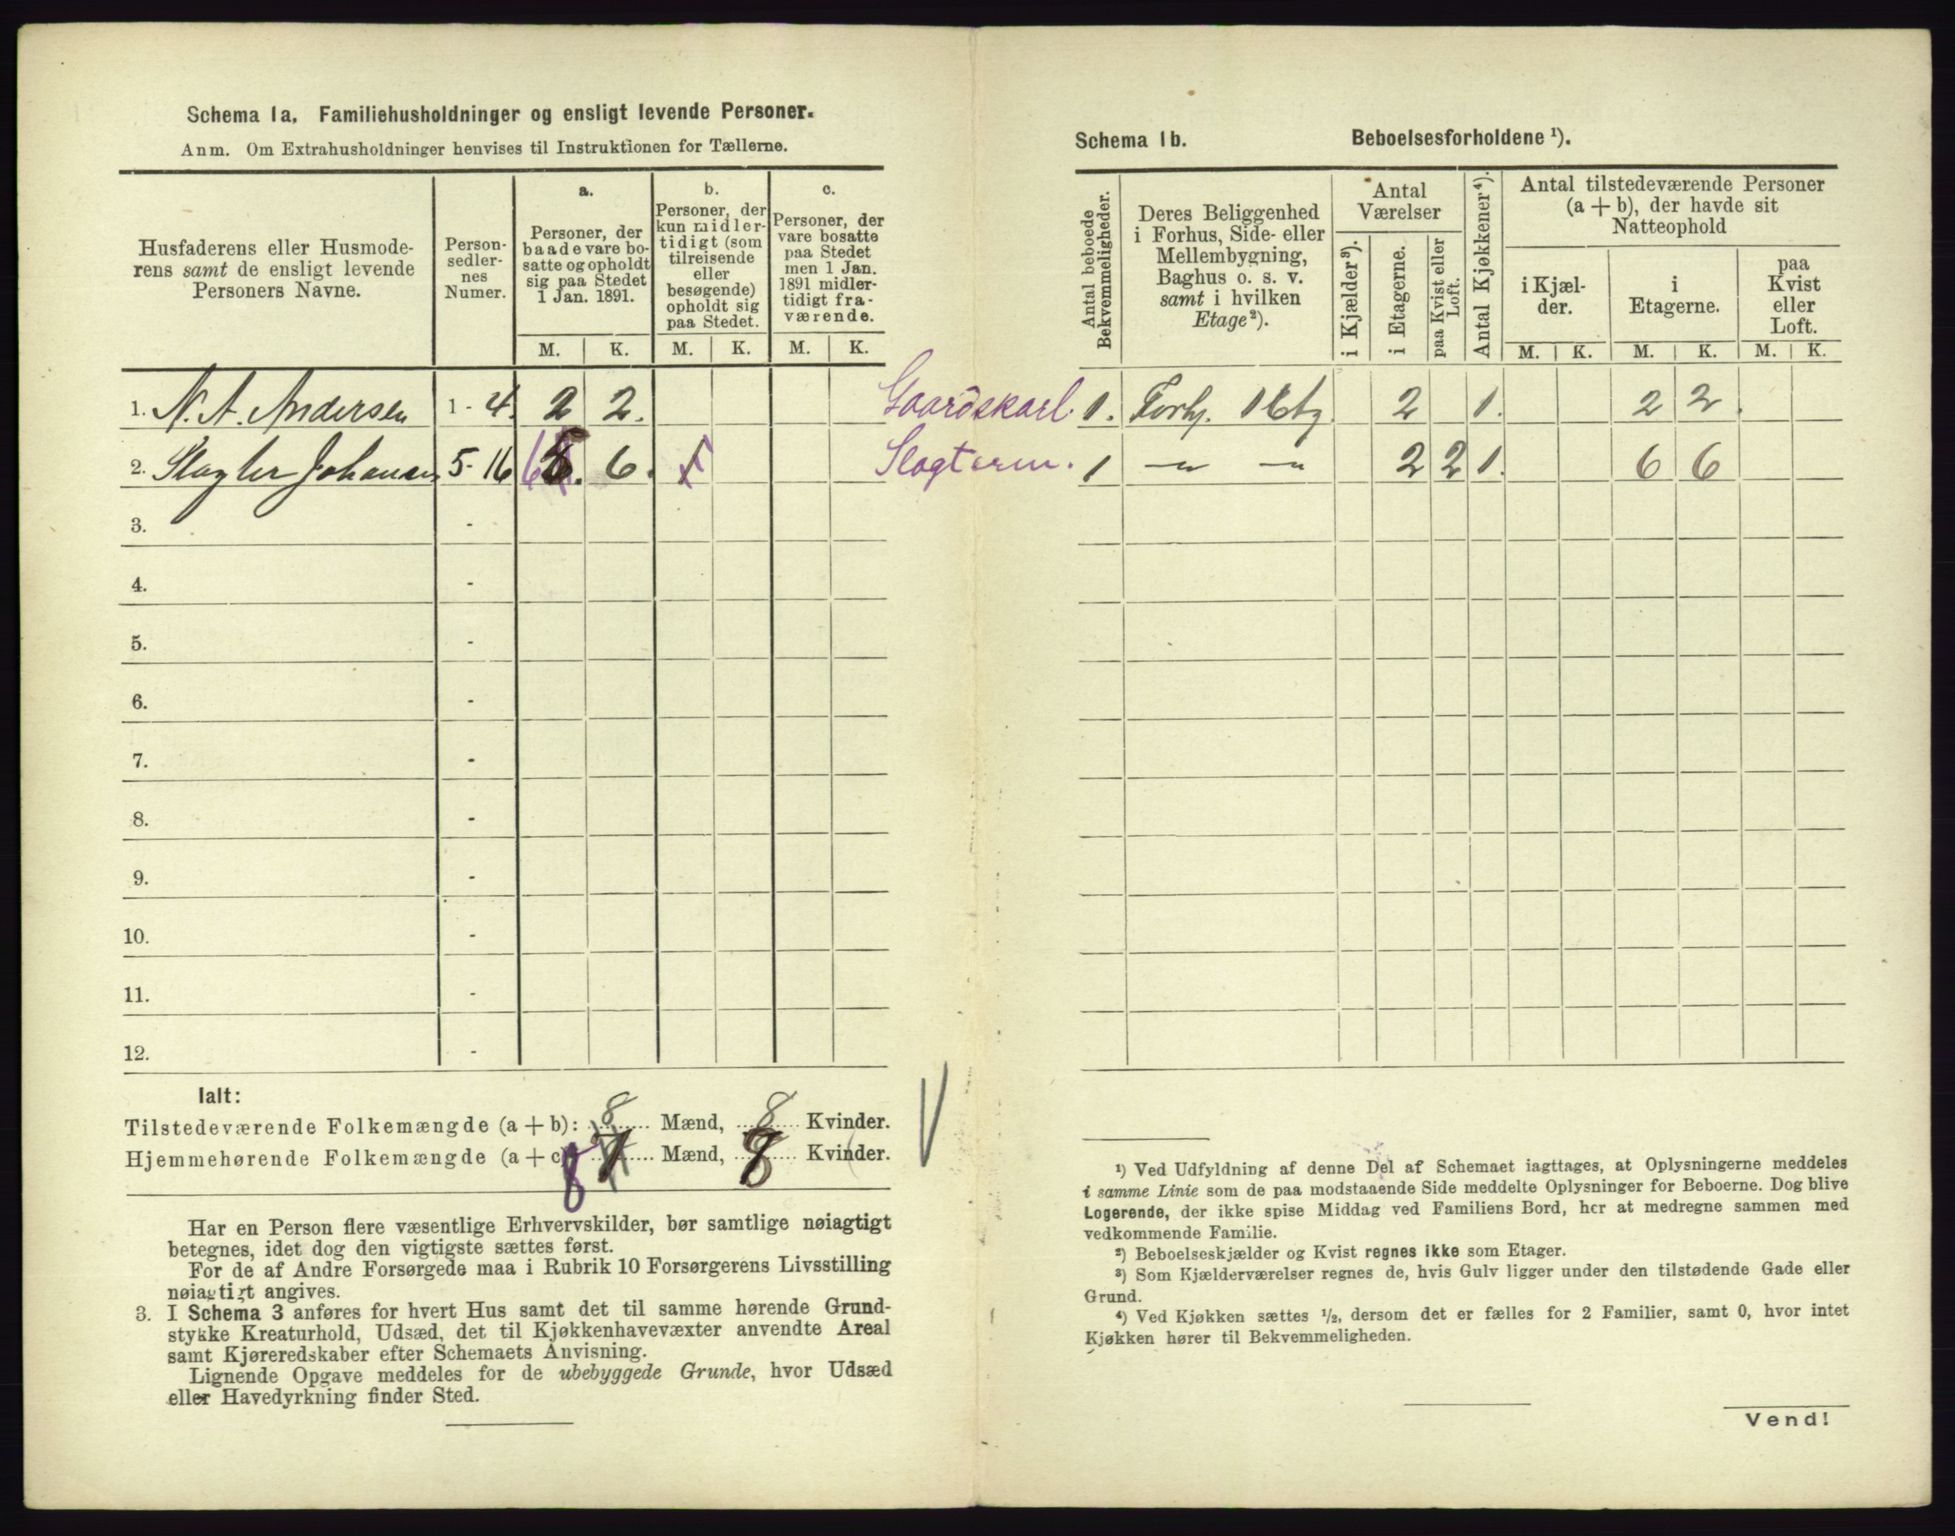 Schema 1a. Familiehusholdninger og ensligt levende Personer.
Anm. Om Extrahusholdninger henvises til Instruktionen for Tællerne.
Husfaderens eller Husmode-
rens samt de ensligt levende
Personers Navne.
Person-
sedler-
nes
Numer.
a.
Personer, der
baade vare bo-
satte og opholdt
sig paa Stedet
1 Jan. 1891.
b.
Personer, der
kun midler-
tidigt (som
tilreisende
eller
besøgende)
opholdt sig
paa Stedet.
c.
Personer, der
vare bosatte
paa Stedet
men 1 Jan.
1891 midler-
tidigt fra-
værende.
M. K. M. K. M. K.
1. N. A. Andersen 1 - 4. 2 2. Gaardskarl.
2. Slagter Johansen 5 - 16 6 6. Slagterm.
3. -
4. -
5. -
6. -
7. -
8. -
9. -
10. -
11. -
12. -
Ialt:
Tilstedeværende Folkemængde (a + b): 8 Mænd, 8 Kvinder.
Hjemmehørende Folkemængde (a + c): 8 7 Mænd, 8 Kvinder.
Har en Person flere væsentlige Erhvervskilder, bør samtlige nøiagtigt
betegnes, idet dog den vigtigste sættes først.
For de af Andre Forsørgede maa i Rubrik 10 Forsørgerens Livsstilling
nøiagtigt angives.
3. I Schema 3 anføres for hvert Hus samt det til samme hørende Grund-
stykke Kreaturhold, Udsæd, det til Kjøkkenhavevæxter anvendte Areal
samt Kjøreredskaber efter Schemaets Anvisning.
Lignende Opgave meddeles for de ubebyggede Grunde, hvor Udsæd
eller Havedyrkning finder Sted.
Schema 1b. Beboelsesforholdene ¹).
Antal beboede
Bekvemmeligheder.
Deres Beliggenhed
i Forhus, Side- eller
Mellembygning,
Baghus o. s. v.
samt i hvilken
Etage²).
Antal
Værelser
i Kjælder³).
i Etagerne.
paa Kvist eller
Loft.
Antal Kjøkkener⁴).
Antal tilstedeværende Personer
(a + b), der havde sit
Natteophold
i Kjæl-
der.
i
Etagerne.
paa
Kvist
eller
Loft.
M. K. M. K. M. K.
1. Forh. 1 Etg 2 1. 2 2.
1 - " - - " - 2 2 1. 6 6
¹) Ved Udfyldning af denne Del af Schemaet iagttages, at Oplysningerne meddeles
i samme Linie som de paa modstaaende Side meddelte Oplysninger for Beboerne. Dog blive
Logerende, der ikke spise Middag ved Familiens Bord, her at medregne sammen med
vedkommende Familie.
²) Beboelseskjælder og Kvist regnes ikke som Etager.
³) Som Kjælderværelser regnes de, hvis Gulv ligger under den tilstødende Gade eller
Grund.
⁴) Ved Kjøkken sættes ½, dersom det er fælles for 2 Familier, samt 0, hvor intet
Kjøkken hører til Bekvemmeligheden.
Vend!